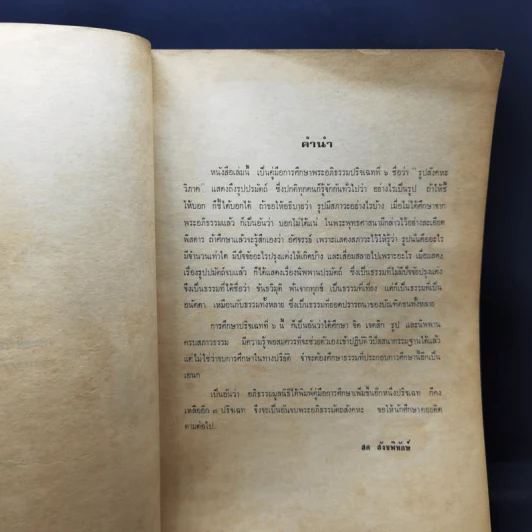 คำนำ
หนังสือเล่มนี้ เป็นคู่มือการศึกษาพระอภิธรรมปริจเฉทที่ ๖ ชื่อว่า "รูปสังคหะ
วิภาค" แสดงถึงรูปปรมัตถ์ ซึ่งปกติทุกคนก็รู้จักกันทั่วไปว่า อย่างไรเป็นรูป ถ้าให้ชี้
ให้บอก ก็ชี้ได้บอกได้ ถ้าขอให้อธิบายว่า รูปมีสภาวะอย่างไรบ้าง เมื่อไม่ได้ศึกษาจาก
พระอภิธรรมแล้ว ก็เป็นอันว่า บอกไม่ได้แน่ ในพระพุทธศาสนามีกล่าวไว้อย่างละเอียด
พิสดาร ถ้าศึกษาแล้วจะรู้สึกเองว่า อัศจรรย์ เพราะแสดงสภาวะไว้ให้รู้ว่า รูปนั้นคืออะไร
มีจำนวนเท่าใด มีปัจจัยอะไรปรุงแต่งให้เกิดบ้าง และเสื่อมสลายไปเพราะอะไร เมื่อแสดง
เรื่องรูปปรมัตถ์จบแล้ว ก็ได้แสดงเรื่องนิพพานปรมัตถ์ ซึ่งเป็นธรรมที่ไม่มีปัจจัยปรุงแต่ง
จึงเป็นธรรมที่ได้ชื่อว่า ขันธวิมุติ พ้นจากทุกข์ เป็นธรรมที่เที่ยง แต่ก็เป็นธรรมที่เป็น
อนัตตา เหมือนกับธรรมทั้งหลาย ซึ่งเป็นธรรมที่ยอดปรารถนาของบัณฑิตชนทั้งหลาย
การศึกษาปริจเฉทที่ ๖ นี้ ก็เป็นอันว่าได้ศึกษา จิต เจตสิก รูป และนิพพาน
ครบสภาวธรรม มีความรู้พอสมควรที่จะช่วยตัวเองเข้าปฏิบัติวิปัสสนากรรมฐานได้แล้ว
แต่ไม่ใช่ว่าจบการศึกษาในทางปริยัติ จำจะต้องศึกษาธรรมที่ประกอบการศึกษานี้อีกเป็น
เอนก
เป็นอันว่า อภิธรรมมูลนิธิได้พิมพ์คู่มือการศึกษาเพิ่มขึ้นอีกหนึ่งปริจเฉท ก็คง
เหลืออีก ๓ ปริจเฉท จึงจะเป็นอันจบพระอภิธรรมมัตถสังคหะ ขอให้นักศึกษาคอยติด
ตามต่อไป